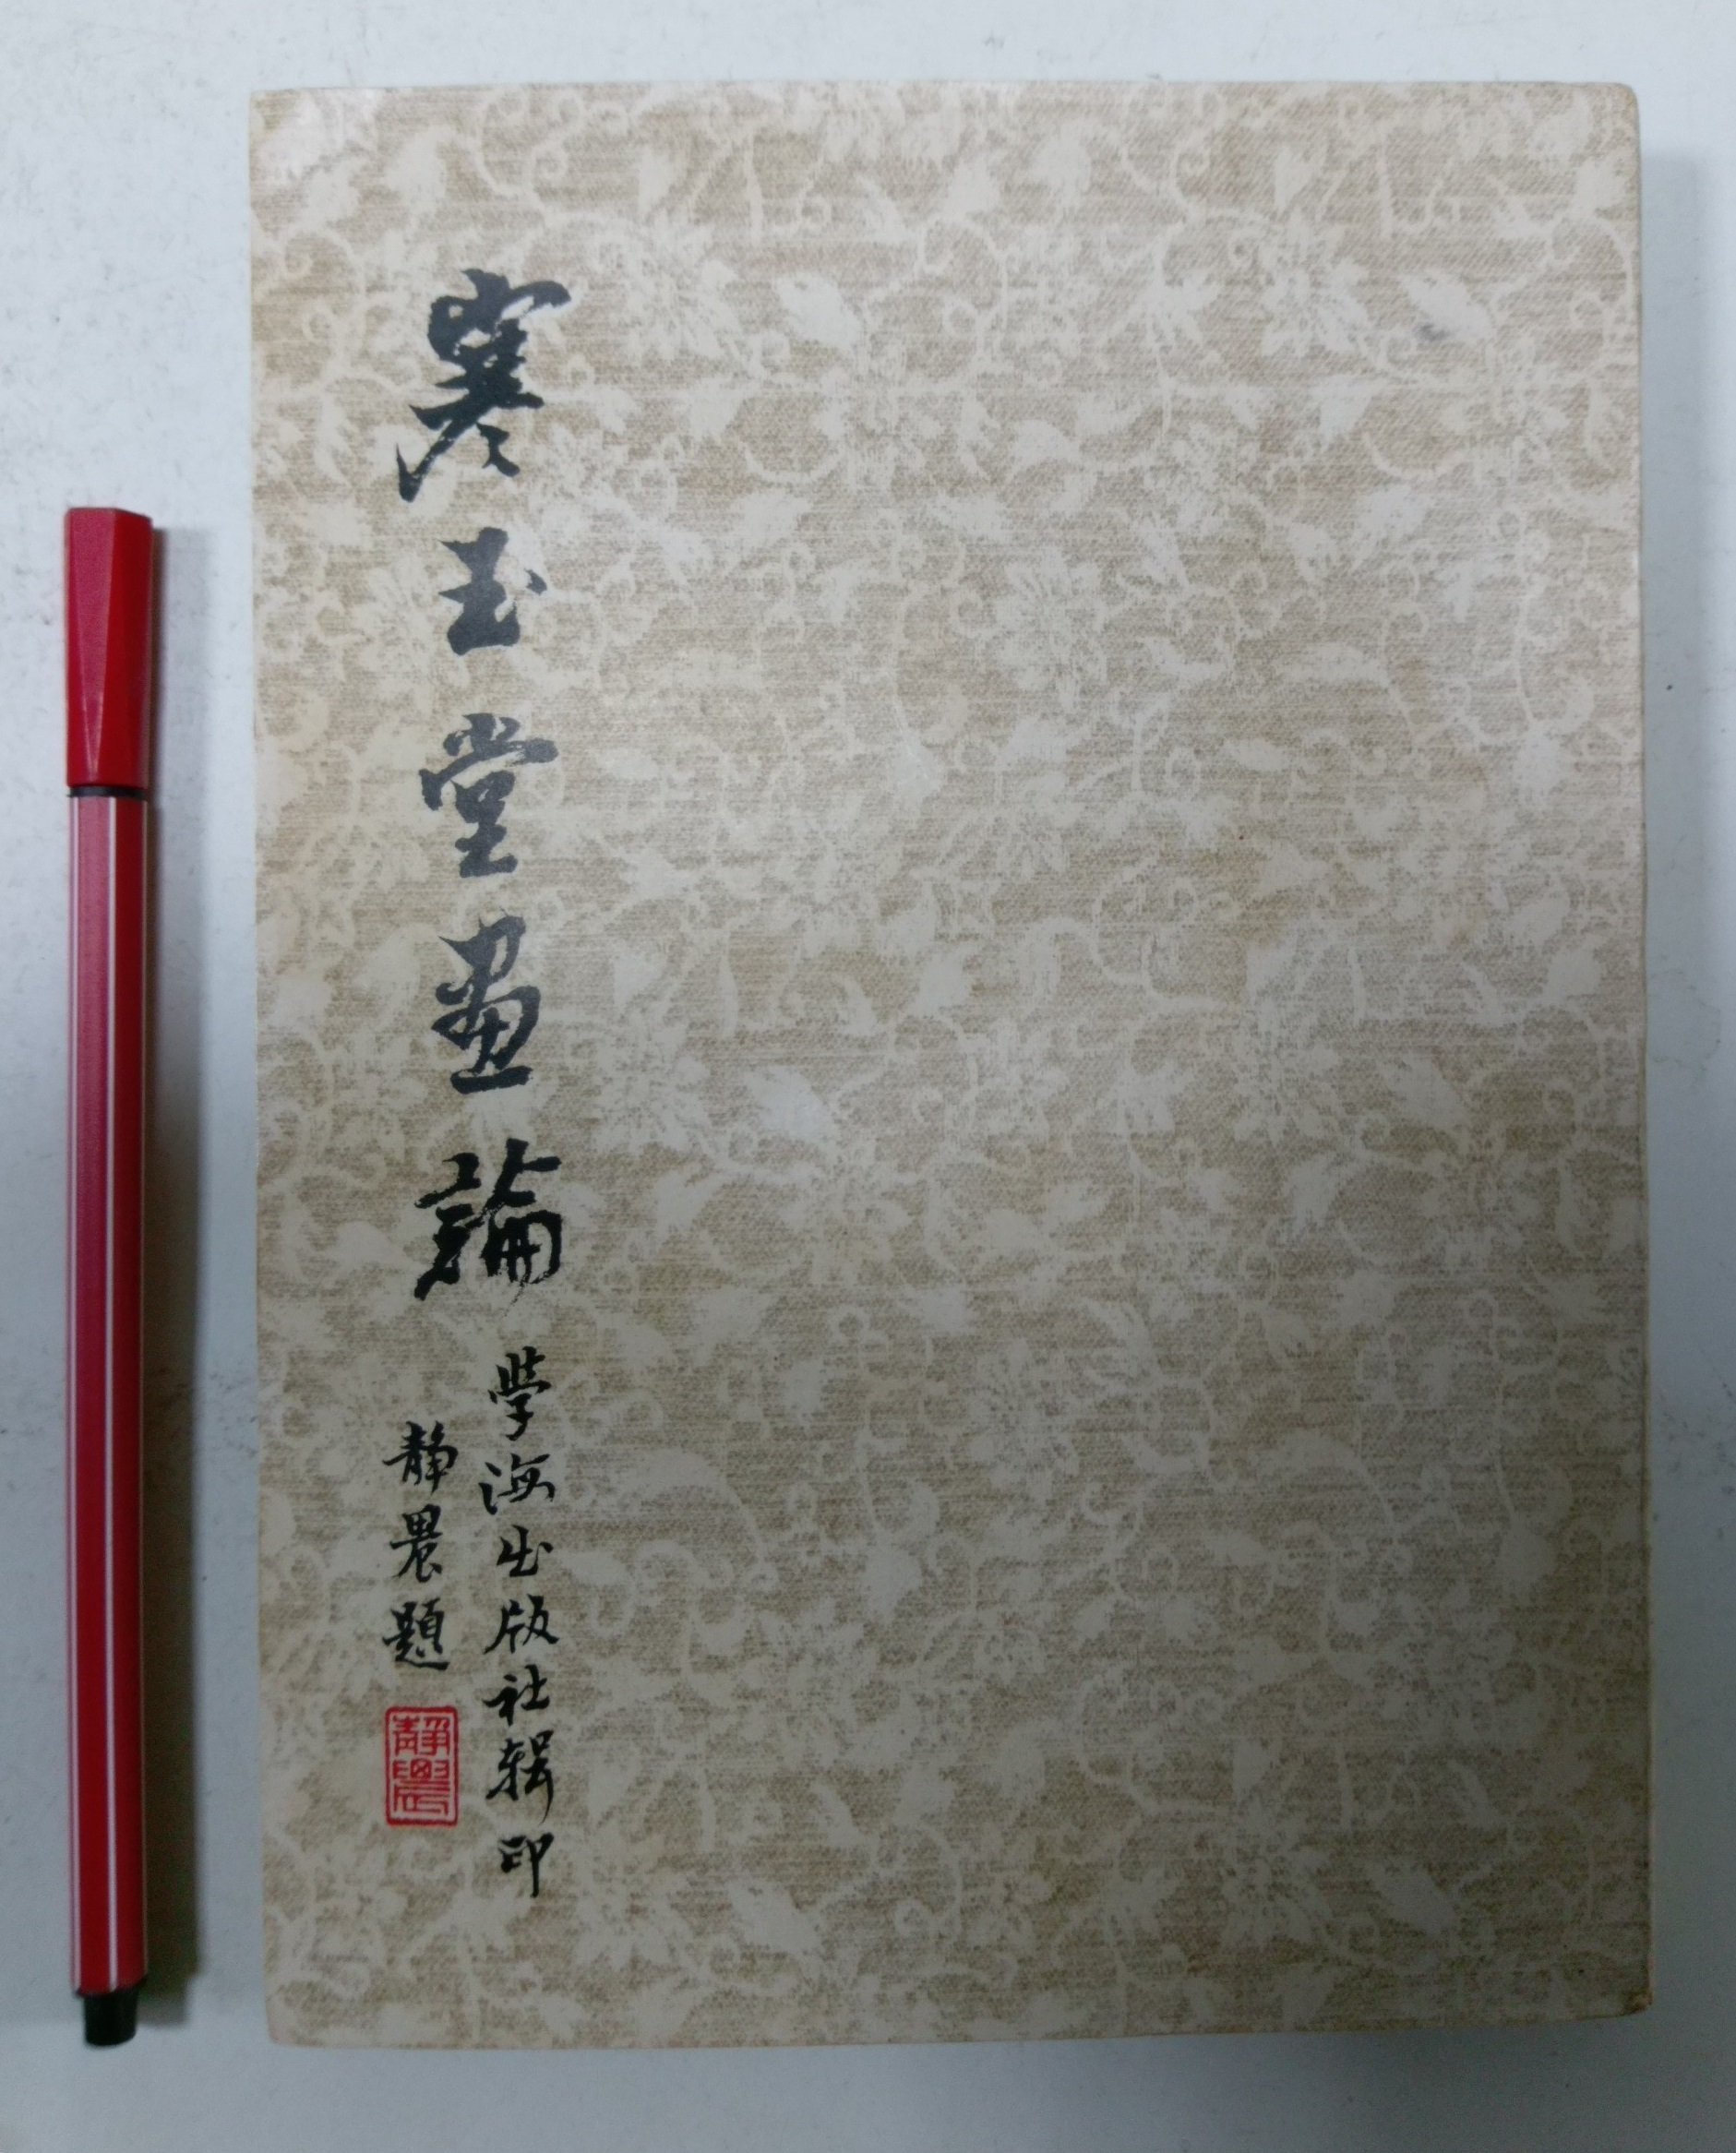 寒玉堂畫論
學海出版社輯印
靜農題
靜農